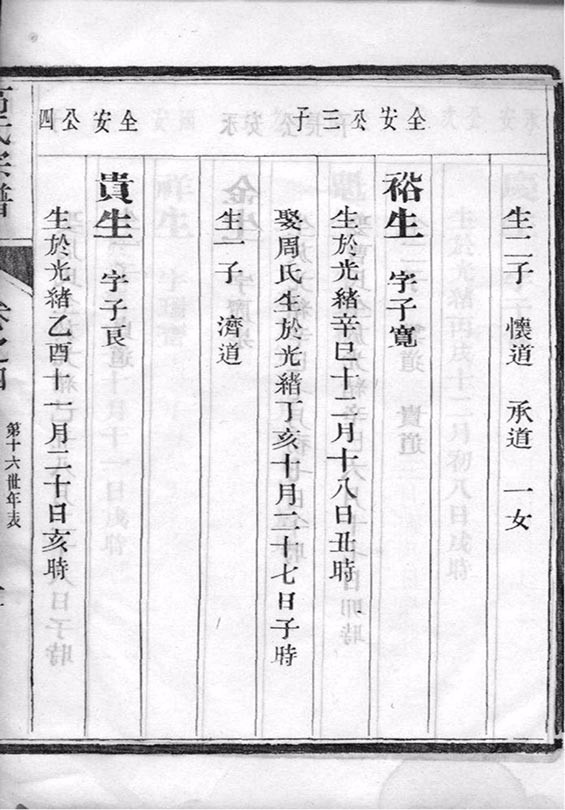 生二子 懷道 承道 一女
全安公三子
裕生 字子寬
生於光緒辛巳十二月十八日丑時
娶周氏生於光緒丁亥十月二十七日子時
生一子 濟道
全安公四
貴生 字子良
生於光緒乙酉十一月二十日亥時
第十六世年表